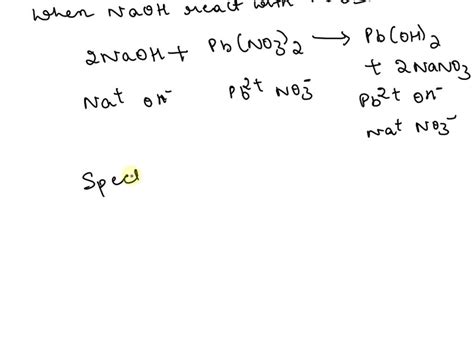 When NaOH react with
2NaOH + Pb(NO3)2 ⟶ Pb(OH)2
+ 2NaNO3
Na+ OH- Pb2+ NO3- Pb2+ OH-
Na+ NO3-
Spec